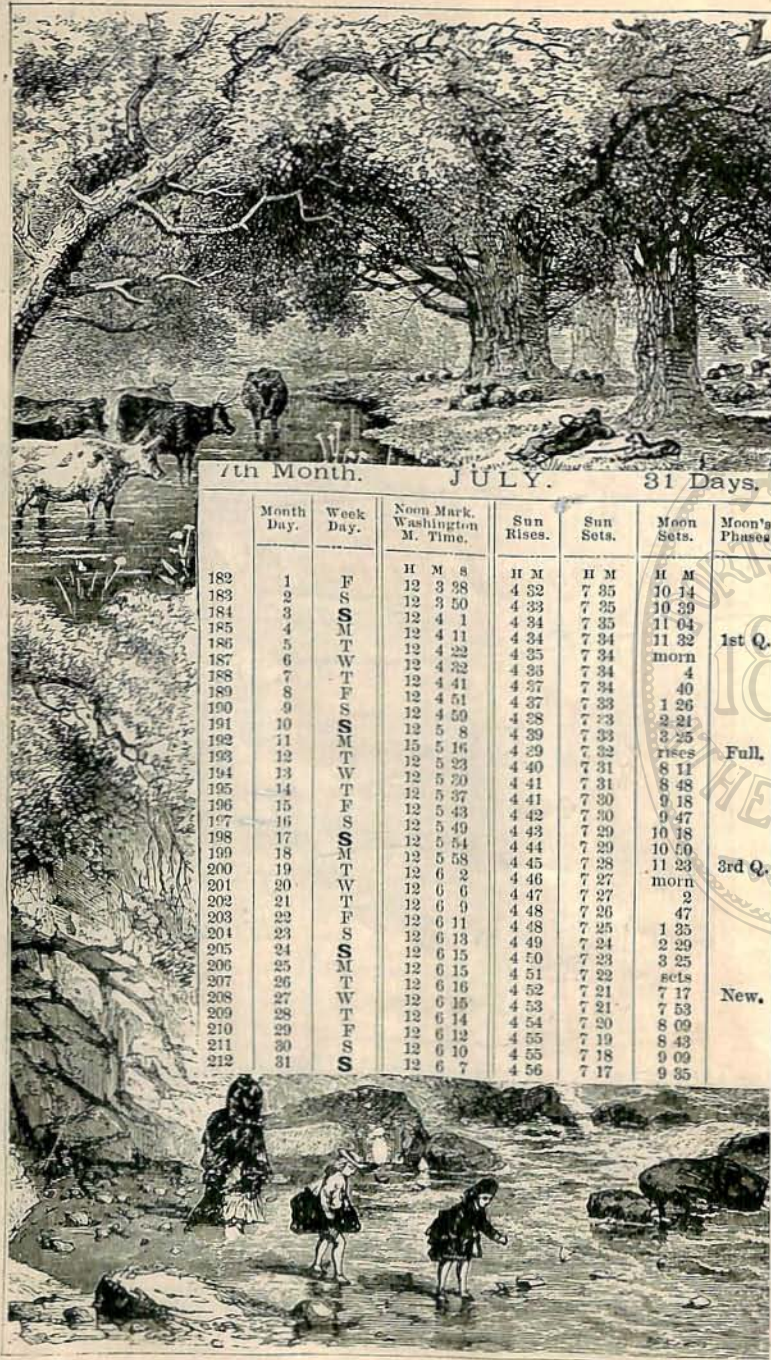 7th Month. JULY. 31 Days.
Month Day. Week Day. Noon Mark. Washington M. Time. Sun Rises. Sun Sets. Moon Sets. Moon's Phases
H M S H M H M H M
182 1 F 12 3 38 4 32 7 35 10 14
183 2 S 12 3 50 4 33 7 35 10 39
184 3 S 12 4 1 4 34 7 35 11 04
185 4 M 12 4 11 4 34 7 34 11 32 1st Q.
186 5 T 12 4 22 4 35 7 34 morn
187 6 W 12 4 32 4 36 7 34 4
188 7 T 12 4 41 4 37 7 34 40
189 8 F 12 4 51 4 37 7 33 1 26
190 9 S 12 4 59 4 38 7 23 2 21
191 10 S 12 5 8 4 39 7 33 3 25
192 11 M 15 5 16 4 29 7 32 rises Full.
193 12 T 12 5 23 4 40 7 31 8 11
194 13 W 12 5 30 4 41 7 31 8 48
195 14 T 12 5 37 4 41 7 30 9 18
196 15 F 12 5 43 4 42 7 30 9 47
197 16 S 12 5 49 4 43 7 29 10 18
198 17 S 12 5 54 4 44 7 29 10 50
199 18 M 12 5 58 4 45 7 28 11 23 3rd Q.
200 19 T 12 6 2 4 46 7 27 morn
201 20 W 12 6 6 4 47 7 27 2
202 21 T 12 6 9 4 48 7 26 47
203 22 F 12 6 11 4 48 7 25 1 35
204 23 S 12 6 13 4 49 7 24 2 29
205 24 S 12 6 15 4 50 7 23 3 25
206 25 M 12 6 15 4 51 7 22 sets
207 26 T 12 6 16 4 52 7 21 7 17 New.
208 27 W 12 6 15 4 53 7 21 7 53
209 28 T 12 6 14 4 54 7 20 8 09
210 29 F 12 6 12 4 55 7 19 8 43
211 30 S 12 6 10 4 55 7 18 9 09
212 31 S 12 6 7 4 56 7 17 9 35